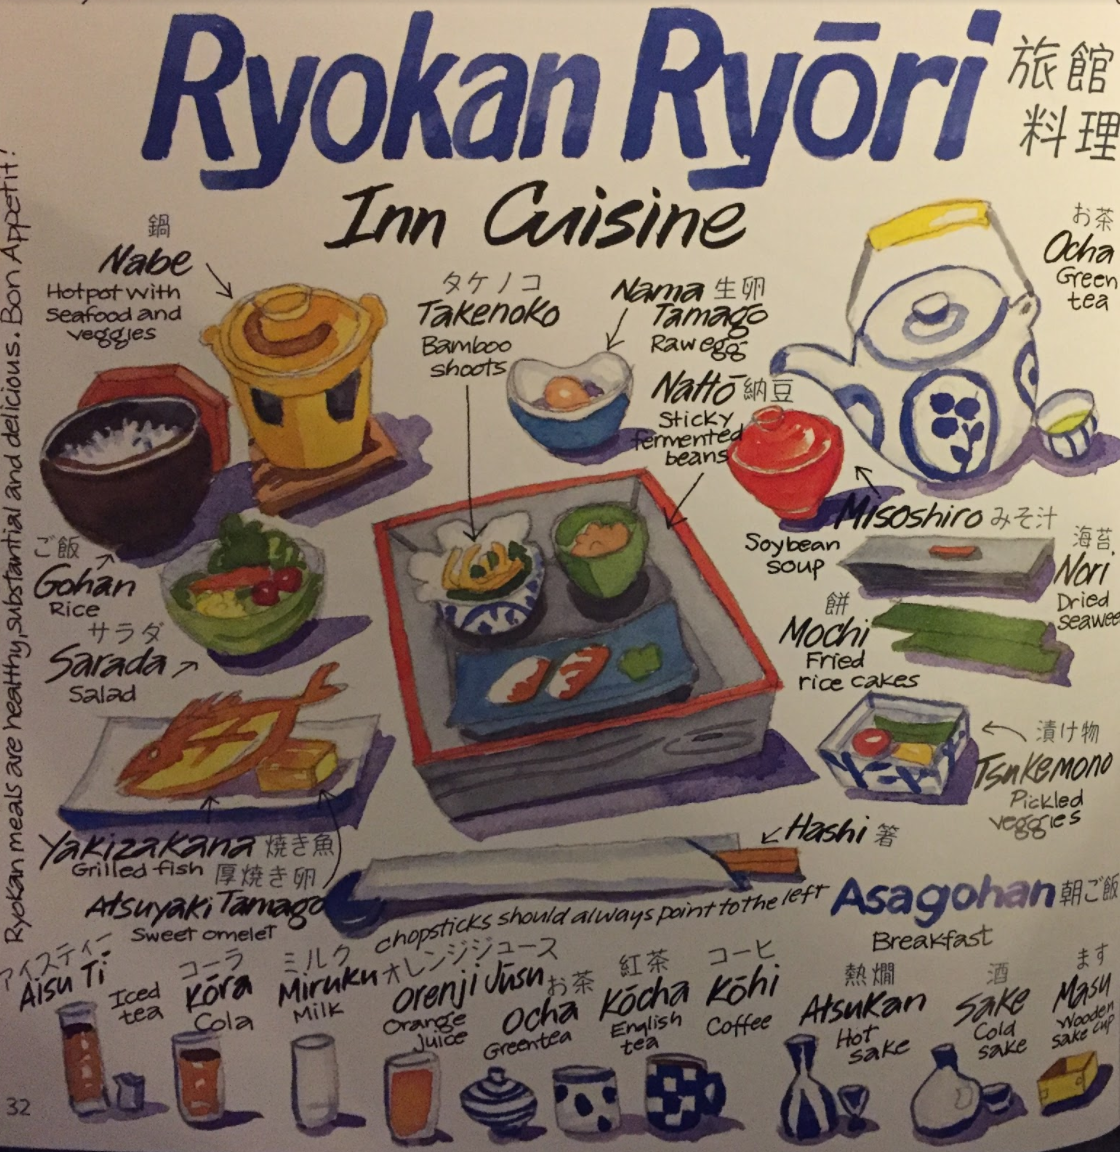 Ryokan Ryōri
旅館
料理
Inn Cuisine
Ryokan meals are healthy, substantial and delicious. Bon Appetit!
鍋
Nabe
Hotpot with
Seafood and
veggies
タケノコ
Takenoko
Bamboo
shoots
Nama 生卵
Tamago
Raw egg
Nattō 納豆
Sticky
fermented
beans
お茶
Ocha
Green
tea
Misoshiro みそ汁
Soybean
soup
海苔
Nori
Dried
seawee
ご飯
Gohan
Rice
サラダ
Sarada
Salad
餅
Mochi
Fried
rice cakes
漬け物
Tsukemono
Pickled
veggies
Yakizakana 焼き魚
Grilled fish
厚焼き卵
Atsuyaki Tamago
Sweet omelet
Hashi 箸
chopsticks should always point to the left
Asagohan 朝ご飯
Breakfast
アイスティー
Aisu Tī
Iced
tea
コーラ
Kōra
Cola
ミルク
Miruku
Milk
オレンジジュース
Orenji Jūsu
Orange
juice
お茶
Ocha
Green tea
紅茶
Kōcha
English
tea
コーヒ
Kōhi
Coffee
熱燗
Atsukan
Hot
sake
酒
Sake
Cold
sake
ます
Masu
Wooden
sake cup
32